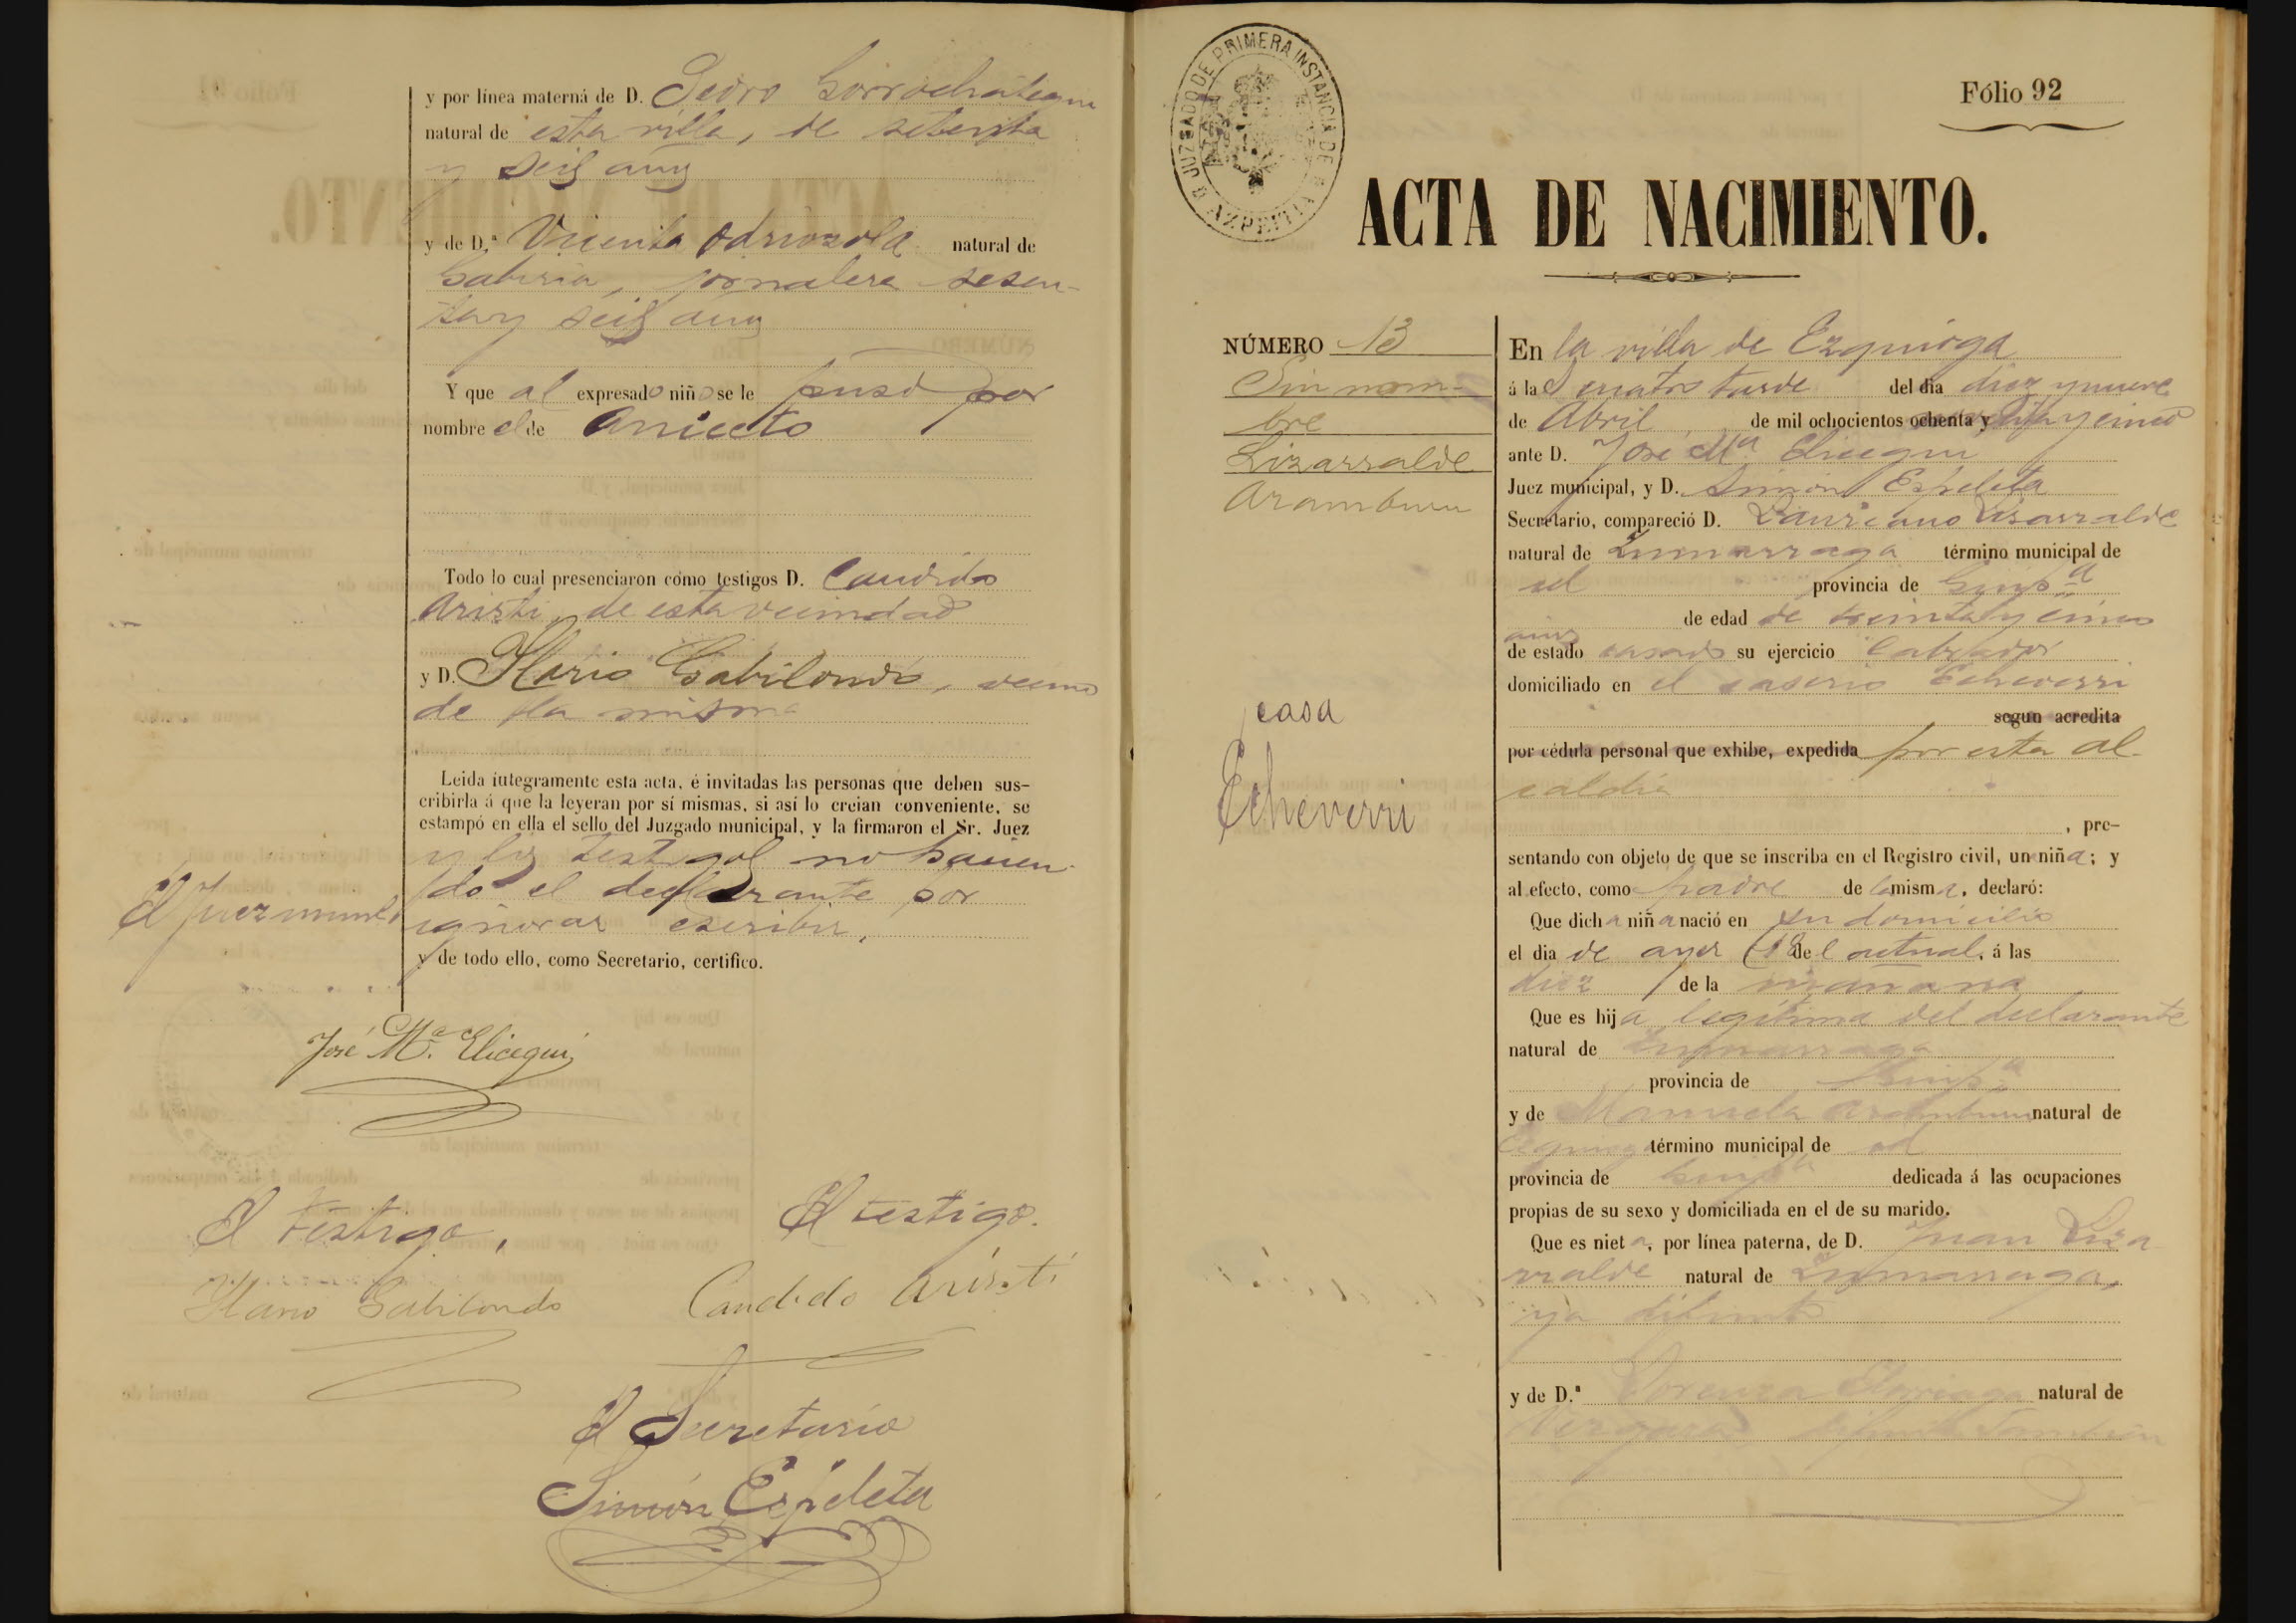 y por línea materna de D. Pedro Gorrochategui
natural de esta villa, de setenta
y seis años
y de D.ª Vicenta Odriozola natural de
Gabiria, jornalera sesen-
ta y seis años
Y que al expresado niño se le puso por
nombre el de Aniceto
Todo lo cual presenciaron como testigos D. Candido
Aristi, de esta vecindad
y D. Ilario Gabilondo, vecino
de la misma
Leida íntegramente esta acta, é invitadas las personas que deben sus-
cribirla á que la leyeran por sí mismas, si así lo creian conveniente, se
estampó en ella el sello del Juzgado municipal, y la firmaron el Sr. Juez
y los testigos no hacien-
do el declarante por
ignorar escribir,
y de todo ello, como Secretario, certifico.
El Juez munl.
José Mª. Elicegui
El testigo,
Ilario Gabilondo
El testigo.
Candido Aristi
El Secretario
Simón Espeleta
JUZGADO DE PRIMERA INSTANCIA DE AZPEITIA
Fólio 92
ACTA DE NACIMIENTO.
NÚMERO 13
Sin nom-
bre
Lizarralde
Aramburu
casa
Echeverri
En la villa de Ezquioga
á las cuatro tarde del dia diez y nueve
de Abril de mil ochocientos ochenta y noventa y cinco
ante D. José Mª Elicegui
Juez municipal, y D. Simon Espeleta
Secretario, compareció D. Lauriano Lisarralde
natural de Zumarraga término municipal de
id provincia de Guipª
de edad de treinta y cinco
años
de estado casado su ejercicio labrador
domiciliado en el caserio Echeverri
segun acredita
por cédula personal que exhibe, expedida por esta al-
caldia
, pre-
sentando con objeto de que se inscriba en el Registro civil, un niña; y
al efecto, como padre de la misma, declaró:
Que dicha niña nació en su domicilio
el dia de ayer (18 del actual, á las
diez de la mañana
Que es hija legítima del declarante
natural de Zumarraga
provincia de Guipª
y de Manuela Aramburu natural de
Ezquioga término municipal de id
provincia de Guipª dedicada á las ocupaciones
propias de su sexo y domiciliada en el de su marido.
Que es nieta, por línea paterna, de D. Juan Liza-
rralde natural de Zumarraga,
ya difunto
y de D.ª Lorenza Elorriaga natural de
Vergara, difunta tambien